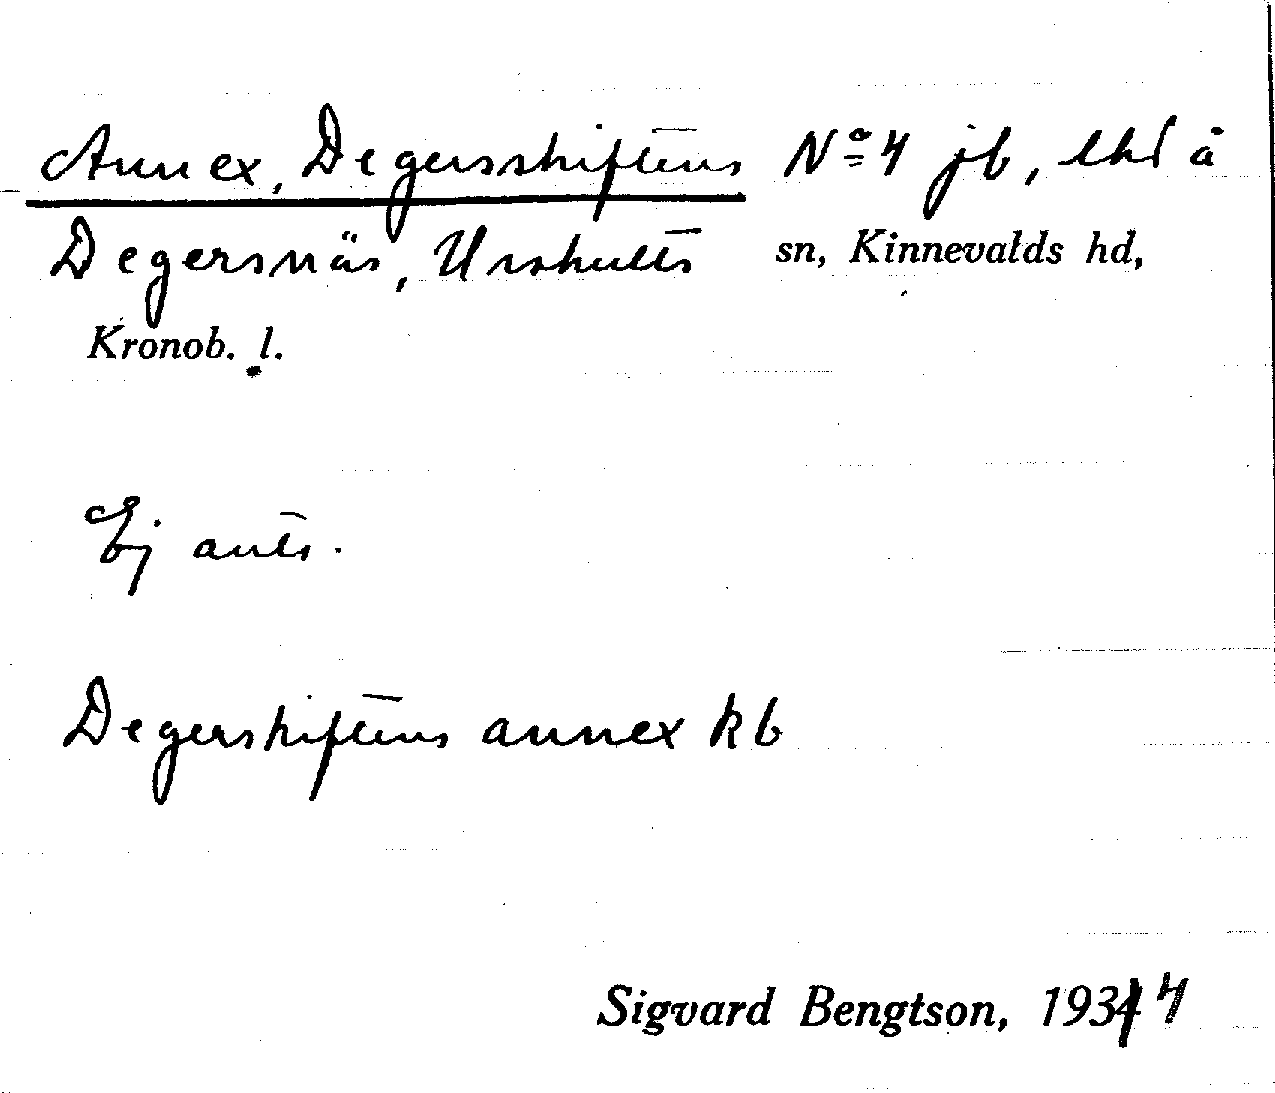 Annex, Degersskiftens No 4 jb, lhd å
Degersnäs, Urshults sn, Kinnevalds hd,
Kronob. l.
Ej ants.
Degerskiftens annex kb
Sigvard Bengtson, 1934 4